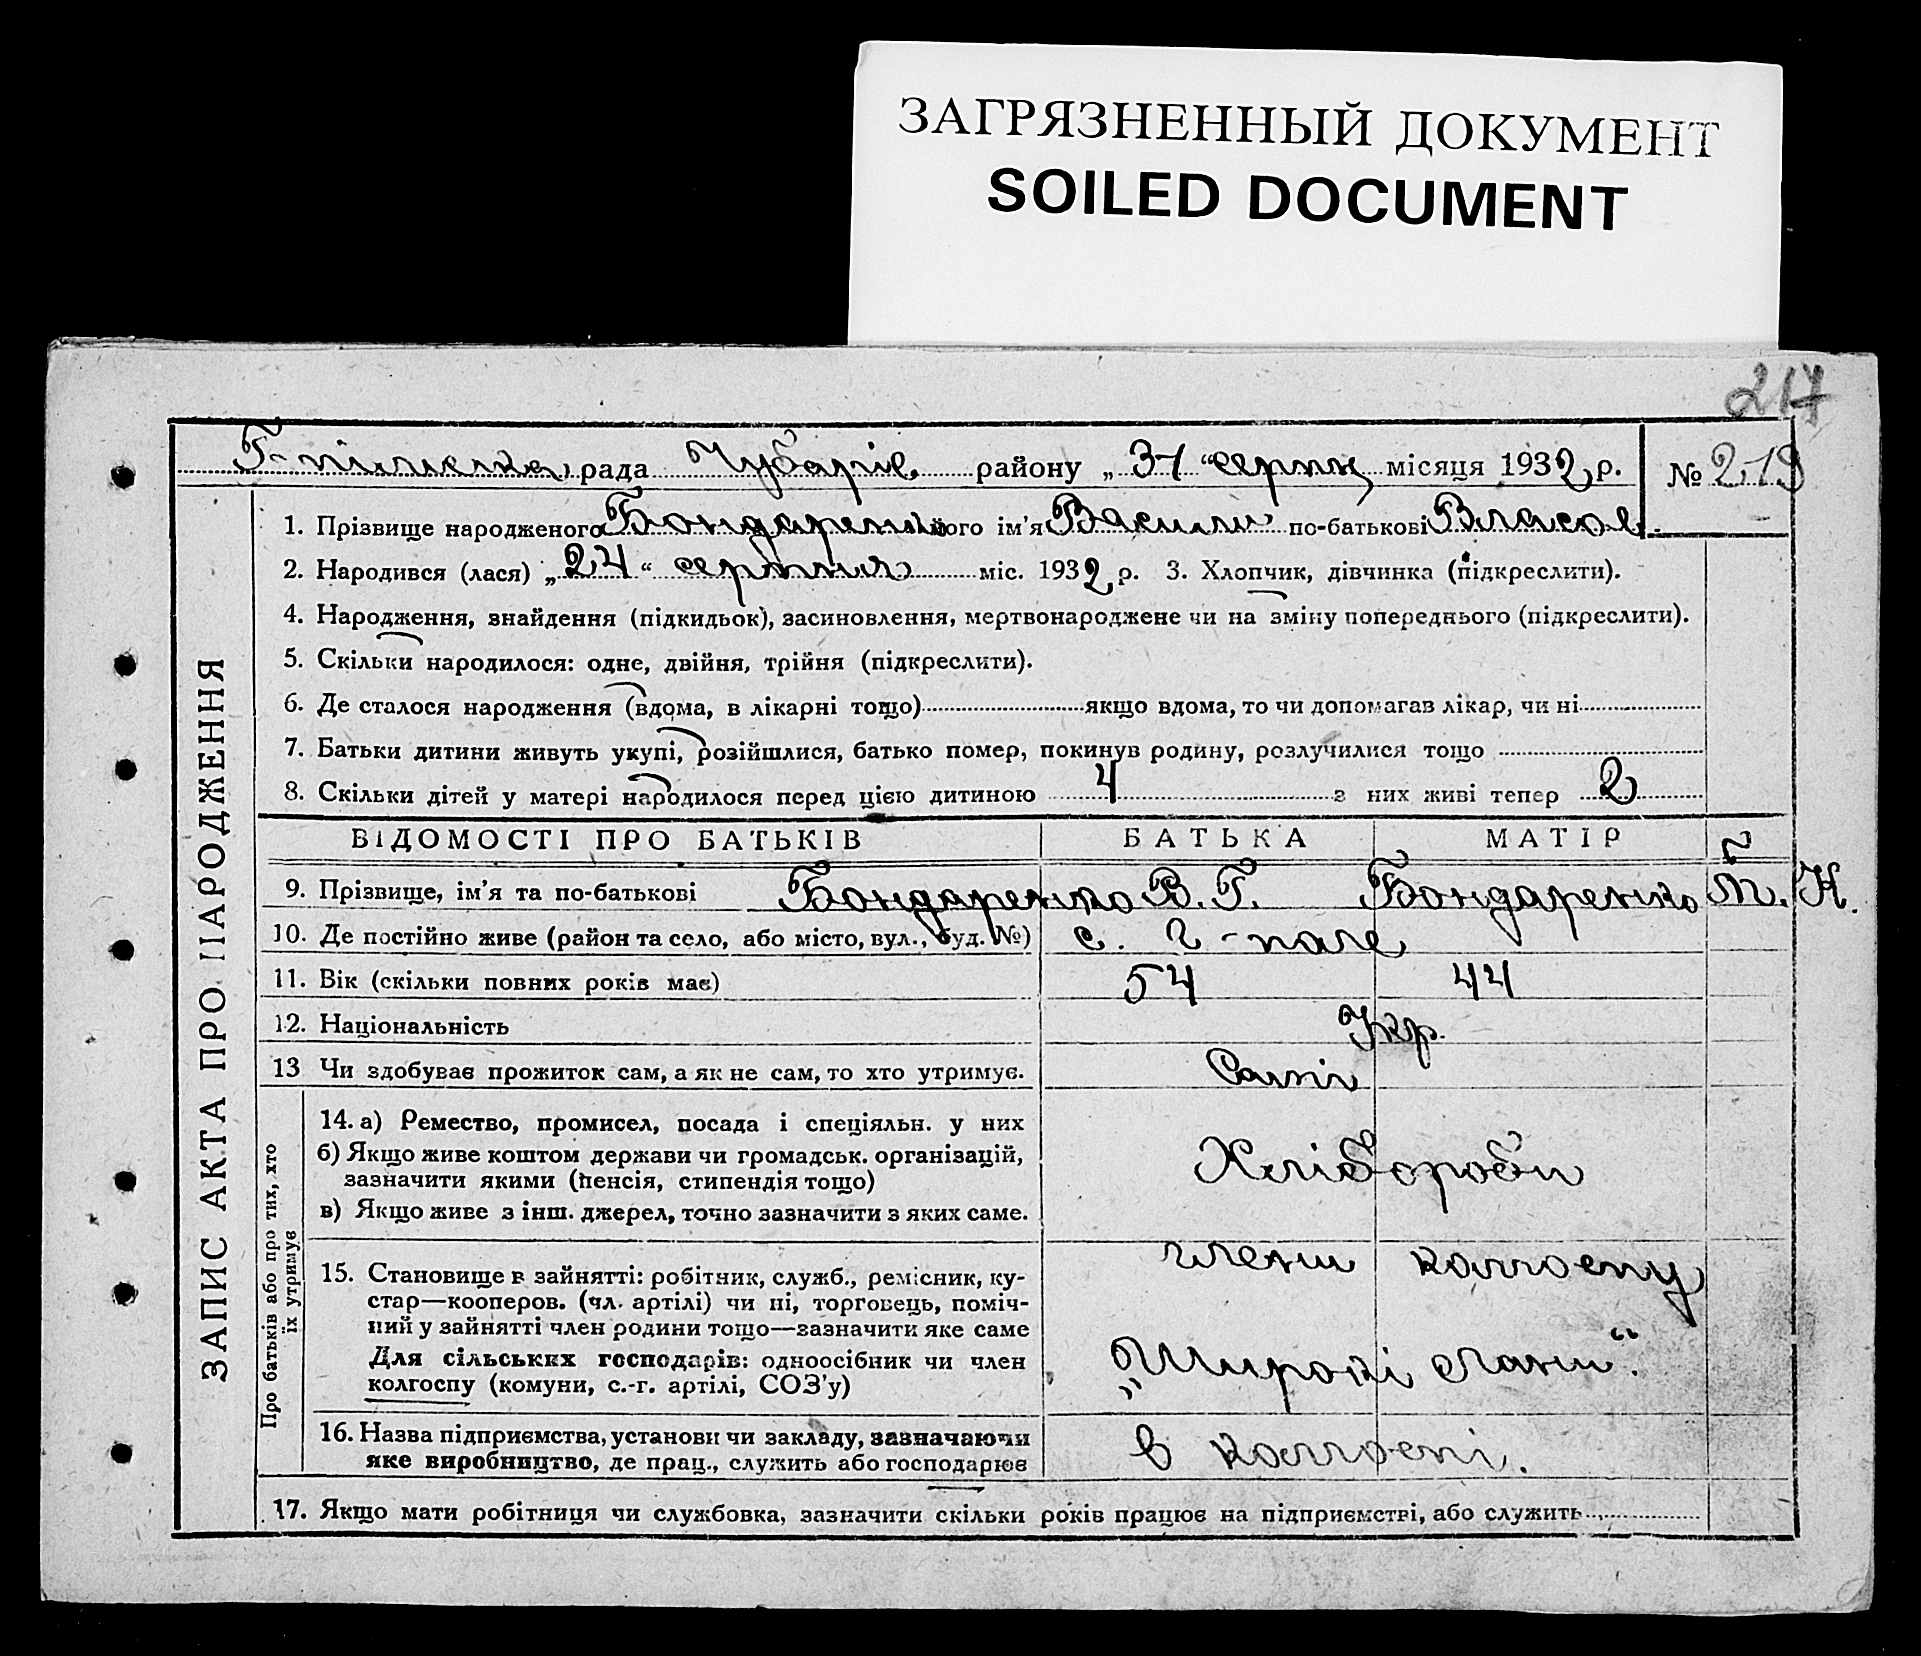 ЗАГРЯЗНЕННЫЙ ДОКУМЕНТ
SOILED DOCUMENT
217
Г-пільська рада Чубарів району „31“ серпн місяця 1932 р. № 219
1. Прізвище народженого Бондаренко його ім'я Василь по-батькові Власов.
2. Народився (лася) „24“ серпня міс. 1932 р. 3. Хлопчик, дівчинка (підкреслити).
4. Народження, знайдення (підкидьок), засиновлення, мертвонароджене чи на зміну попереднього (підкреслити).
5. Скільки народилося: одне, двійня, трійня (підкреслити).
6. Де сталося народження (вдома, в лікарні тощо) якщо вдома, то чи допомагав лікар, чи ні
7. Батьки дитини живуть укупі, розійшлися, батько помер, покинув родину, розлучилися тощо
8. Скільки дітей у матері народилося перед цією дитиною 4 з них живі тепер 2
ВІДОМОСТІ ПРО БАТЬКІВ БАТЬКА МАТІР
9. Прізвище, ім'я та по-батькові Бондаренко В. Г. Бондаренко Т. Н.
10. Де постійно живе (район та село, або місто, вул., буд. №) с. Г-поле
11. Вік (скільки повних років має) 54 44
12. Національність Укр.
13 Чи здобуває прожиток сам, а як не сам, то хто утримує. Самі
14. а) Ремество, промисел, посада і спеціяльн. у них
б) Якщо живе коштом держави чи громадськ. організацій,
зазначити якими (пенсія, стипендія тощо) Хлібороби
в) Якщо живе з інш. джерел, точно зазначити з яких саме.
15. Становище в зайнятті: робітник, служб., ремісник, ку- члени колгоспу
стар—кооперов. (чл. артілі) чи ні, торговець, поміч-
ний у зайнятті член родини тощо—зазначити яке саме
Для сільських господарів: одноосібник чи член „Широкі лани“.
колгоспу (комуни, с.-г. артілі, СОЗ'у)
16. Назва підприємства, установи чи закладу, зазначаючи в колгоспі.
яке виробництво, де прац., служить або господарює
17. Якщо мати робітниця чи службовка, зазначити скільки років працює на підприємстві, або служить
ЗАПИС АКТА ПРО НАРОДЖЕННЯ
Про батьків або про тих, хто
їх утримує